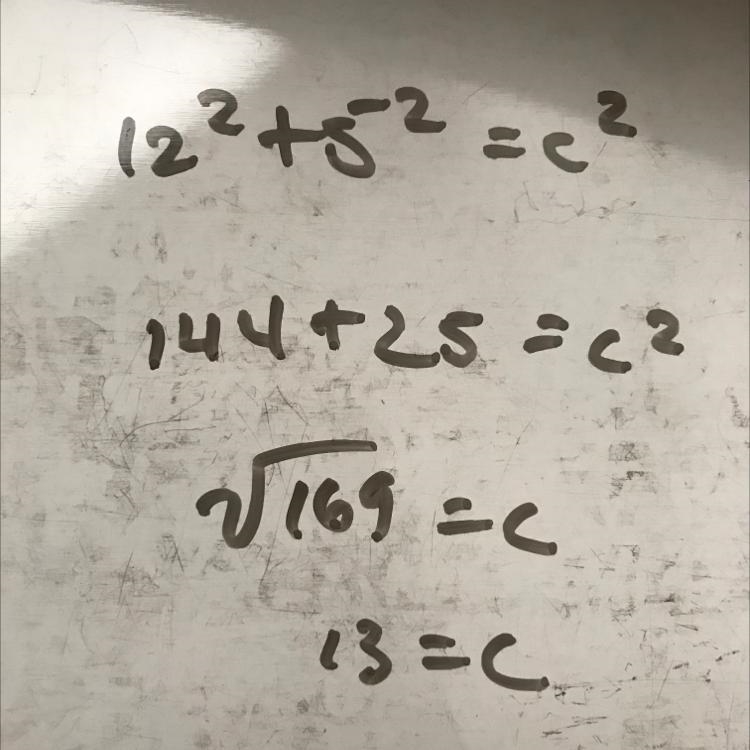 12² + 5² = c²
144 + 25 = c²
√169 = c
13 = c